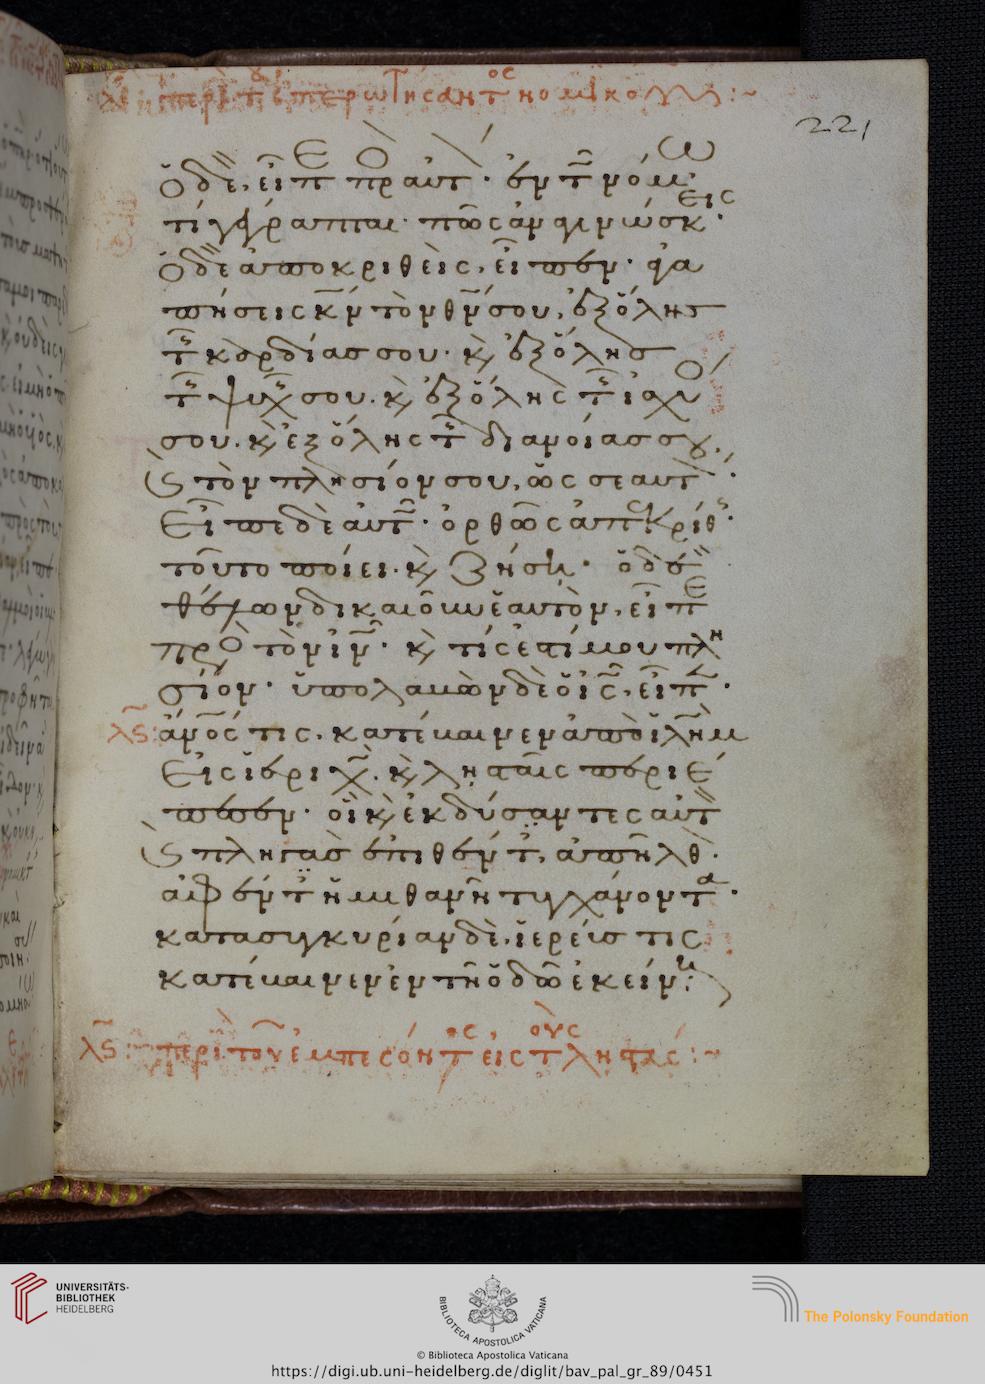 λε περὶ τοῦ ἐπερωτήσαντος νομικοῦ :~
221
Ὁ δὲ, εἶπε πρὸς αὐτ· ἐν τῷ νόμῳ
τί γέγραπται· πῶς ἀναγινώσκεις·
Ὁ δὲ ἀποκριθεὶς, εἶπεν· ἀγα
πήσεις κν τὸν θν σου, ἐξ ὅλης
τῆς καρδίας σου· κ ἐξ ὅλης
τῆς ψυχῆς σου· κ ἐξ ὅλης τῆς ἰσχύο
σου· κ ἐξ ὅλης τῆς διανοίας σου·
κ τὸν πλησίον σου, ὡς σεαυτὸν·
Εἶπε δὲ αὐτῷ· ὀρθῶς ἀπεκρίθης·
τοῦτο ποίει· κ ζήση· ὁ δὲ
θέλων δικαιοῦν ἑαυτὸν, εἶπε
πρὸς τὸν ιν· κ τίς ἐστί μου πλη
σίον· ὑπολαβὼν δὲ ὁ ις, εἶπεν·
λς: ἀνος τις, κατέβαινεν ἀπὸ ιλημ
Εἰς ἱεριχὼ· κ λησταῖς περιέ
πεσεν· οἳ κ ἐκδύσαντες αὐτὸν
κ πληγὰς ἐπιθέντες, ἀπῆλθον·
ἀφέντες ἡμιθανῆ τυγχάνοντα·
κατὰ συγκυρίαν δὲ, ἱερεύς τις
κατέβαινεν ἐν τῆ ὁδῶ ἐκείνη·
λς :~ περὶ τοῦ ἐμπεσόντος εἰς τοὺς ληστάς :~
UNIVERSITÄTS-
BIBLIOTHEK
HEIDELBERG
BIBLIOTECA APOSTOLICA VATICANA
The Polonsky Foundation
© Biblioteca Apostolica Vaticana
https://digi.ub.uni-heidelberg.de/diglit/bav_pal_gr_89/0451